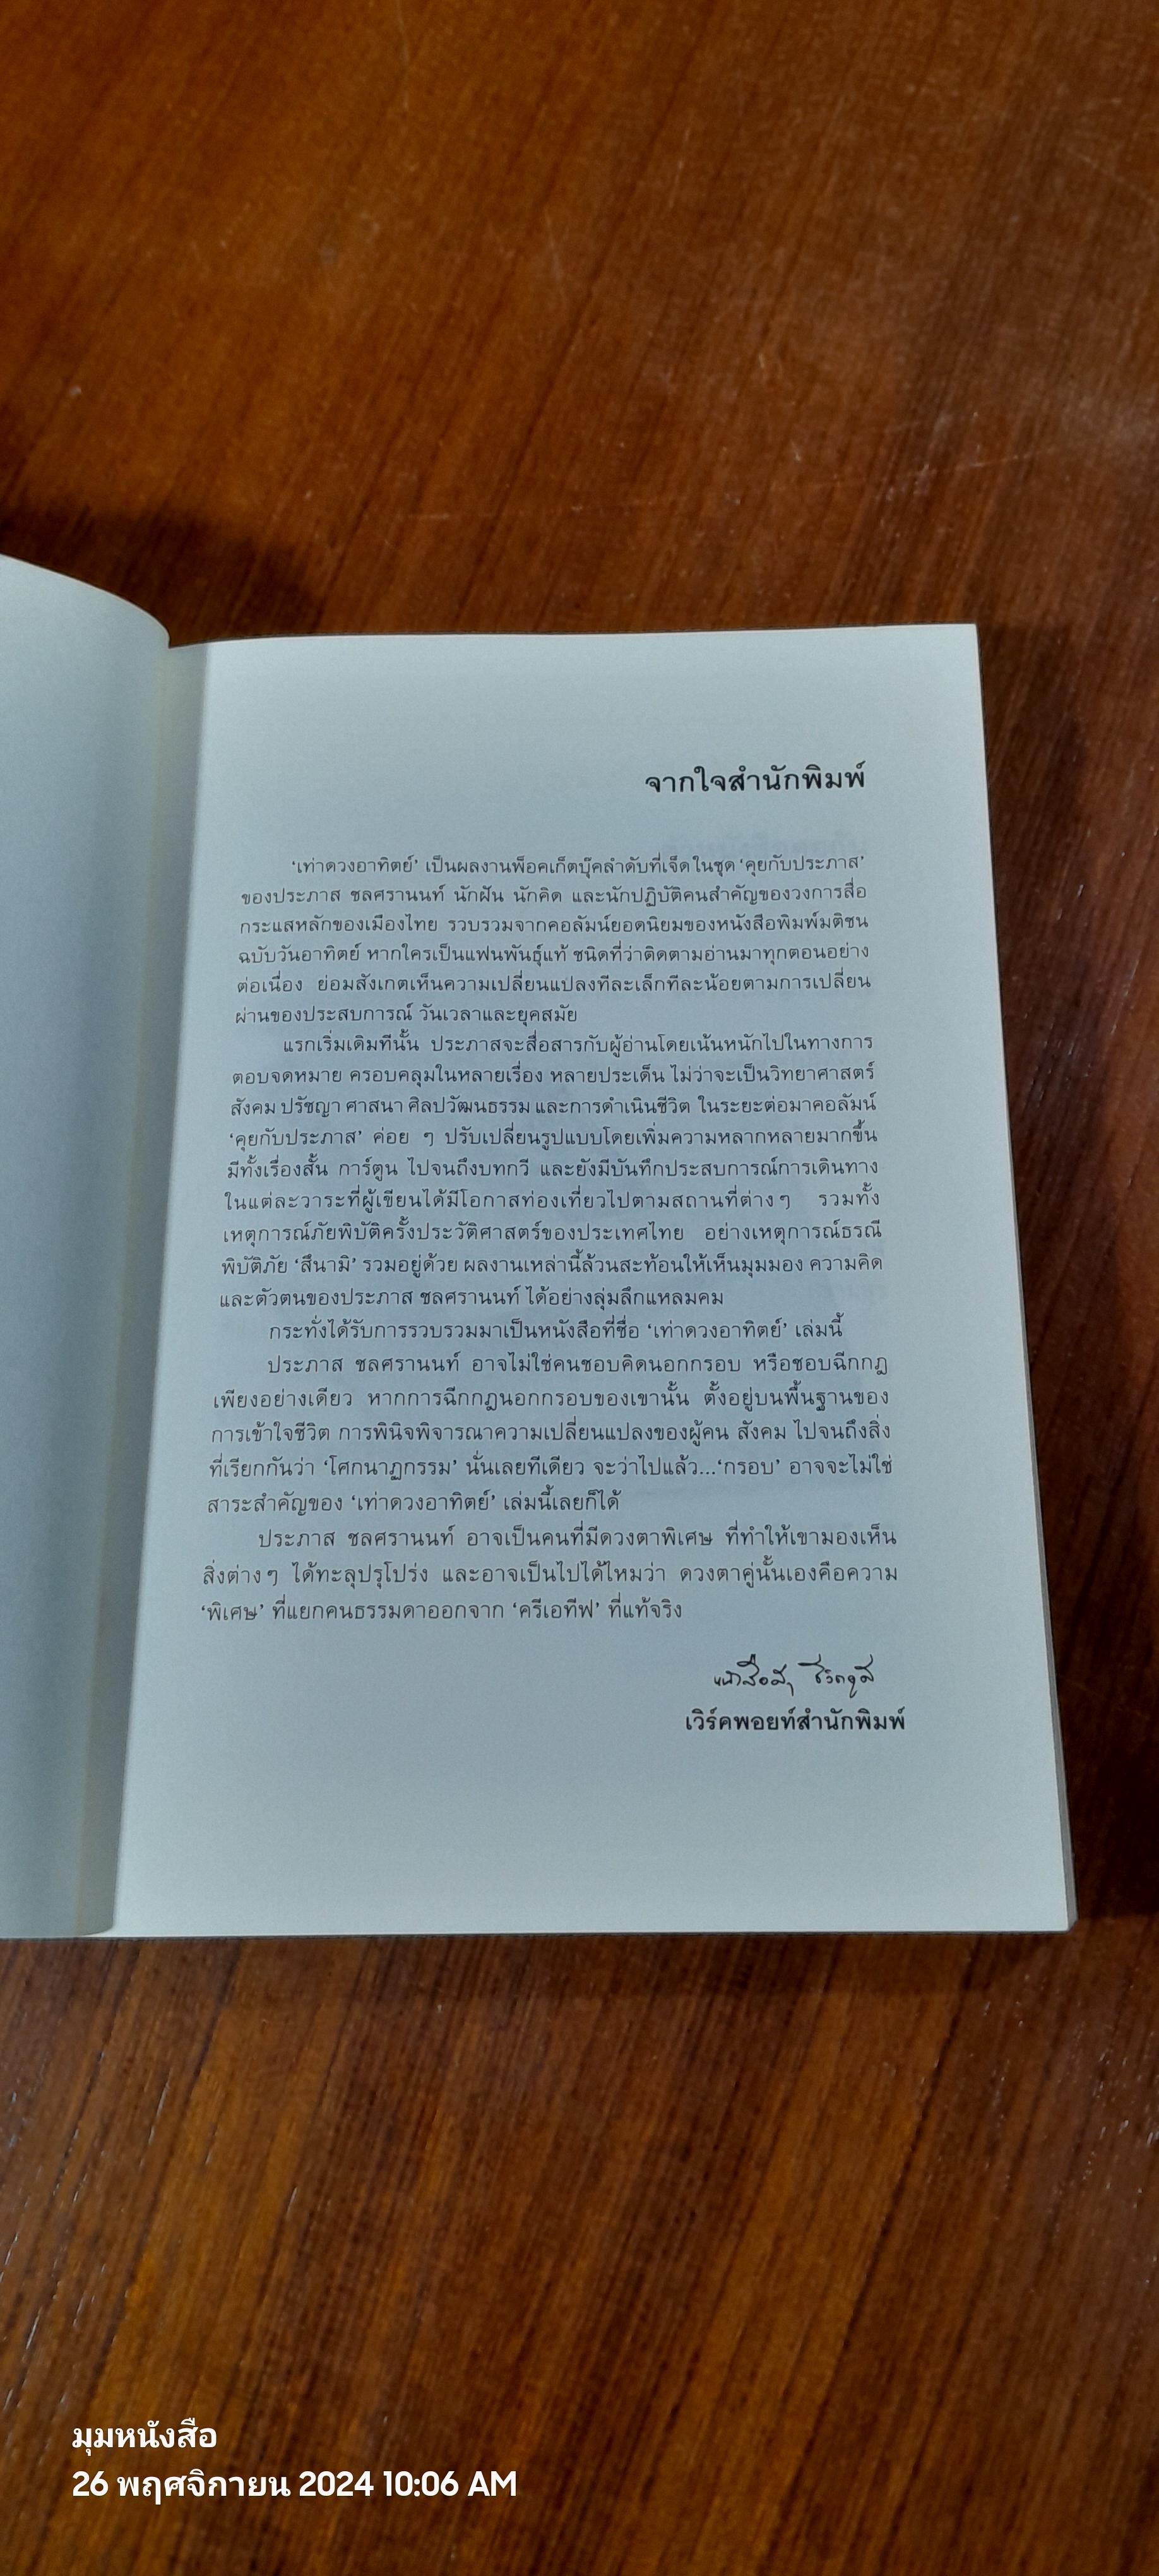 จากใจสำนักพิมพ์
‘เท่าดวงอาทิตย์’ เป็นผลงานพ็อคเก็ตบุ๊คลำดับที่เจ็ดในชุด ‘คุยกับประภาส’
ของประภาส ชลศรานนท์ นักฝัน นักคิด และนักปฏิบัติคนสำคัญของวงการสื่อ
กระแสหลักของเมืองไทย รวบรวมจากคอลัมน์ยอดนิยมของหนังสือพิมพ์มติชน
ฉบับวันอาทิตย์ หากใครเป็นแฟนพันธุ์แท้ ชนิดที่ว่าติดตามอ่านมาทุกตอนอย่าง
ต่อเนื่อง ย่อมสังเกตเห็นความเปลี่ยนแปลงทีละเล็กทีละน้อยตามการเปลี่ยน
ผ่านของประสบการณ์ วันเวลาและยุคสมัย
แรกเริ่มเดิมทีนั้น ประภาสจะสื่อสารกับผู้อ่านโดยเน้นหนักไปในทางการ
ตอบจดหมาย ครอบคลุมในหลายเรื่อง หลายประเด็น ไม่ว่าจะเป็นวิทยาศาสตร์
สังคม ปรัชญา ศาสนา ศิลปวัฒนธรรม และการดำเนินชีวิต ในระยะต่อมาคอลัมน์
‘คุยกับประภาส’ ค่อย ๆ ปรับเปลี่ยนรูปแบบโดยเพิ่มความหลากหลายมากขึ้น
มีทั้งเรื่องสั้น การ์ตูน ไปจนถึงบทกวี และยังมีบันทึกประสบการณ์การเดินทาง
ในแต่ละวาระที่ผู้เขียนได้มีโอกาสท่องเที่ยวไปตามสถานที่ต่างๆ รวมทั้ง
เหตุการณ์ภัยพิบัติครั้งประวัติศาสตร์ของประเทศไทย อย่างเหตุการณ์ธรณี
พิบัติภัย ‘สึนามิ’ รวมอยู่ด้วย ผลงานเหล่านี้ล้วนสะท้อนให้เห็นมุมมอง ความคิด
และตัวตนของประภาส ชลศรานนท์ ได้อย่างลุ่มลึกแหลมคม
กระทั่งได้รับการรวบรวมมาเป็นหนังสือที่ชื่อ ‘เท่าดวงอาทิตย์’ เล่มนี้
ประภาส ชลศรานนท์ อาจไม่ใช่คนชอบคิดนอกกรอบ หรือชอบฉีกกฎ
เพียงอย่างเดียว หากการฉีกกฎนอกกรอบของเขานั้น ตั้งอยู่บนพื้นฐานของ
การเข้าใจชีวิต การพินิจพิจารณาความเปลี่ยนแปลงของผู้คน สังคม ไปจนถึงสิ่ง
ที่เรียกกันว่า ‘โศกนาฏกรรม’ นั่นเลยทีเดียว จะว่าไปแล้ว...‘กรอบ’ อาจจะไม่ใช่
สาระสำคัญของ ‘เท่าดวงอาทิตย์’ เล่มนี้เลยก็ได้
ประภาส ชลศรานนท์ อาจเป็นคนที่มีดวงตาพิเศษ ที่ทำให้เขามองเห็น
สิ่งต่างๆ ได้ทะลุปรุโปร่ง และอาจเป็นไปได้ไหมว่า ดวงตาคู่นั้นเองคือความ
‘พิเศษ’ ที่แยกคนธรรมดาออกจาก ‘ครีเอทีฟ’ ที่แท้จริง
เวิร์คพอยท์สำนักพิมพ์
มุมหนังสือ
26 พฤศจิกายน 2024 10:06 AM